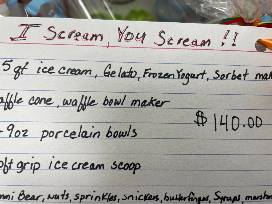 I Scream, You Scream !!
5 qt ice cream, Gelato, Frozen Yogurt, Sorbet mak
affle cone, waffle bowl maker
$140.00
9oz porcelain bowls
oft grip ice cream scoop
mmi Bear, nuts, sprinkles, snickers, butterfingers, Syrups, marshm